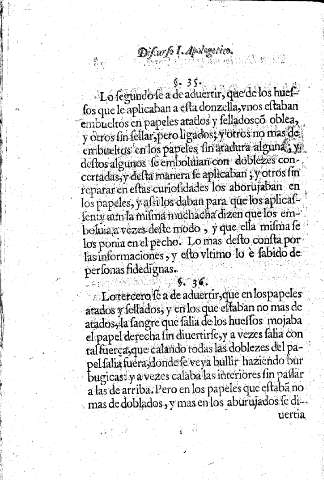 Discurso I. Apologetico.
§. 35.
Lo segundo se a de aduertir, que de los huessos
sos que le aplicaban a esta donzella, vnos estaban
embueltos en papeles atados y sellados cõ oblea,
y otros sin sellar, pero ligados; y otros no mas de
embueltos en los papeles sin atadura alguna; y
destos algunos se emboluian con doblezes con-
certadas, y desta manera se aplicaban; y otros sin
reparar en estas curiosidades los aborujaban en
los papeles, y assi los daban para que los aplicas-
sen: y aun la misma muchacha dizen que los em-
boluia a vezes deste modo, y que ella misma se
los ponia en el pecho. Lo mas desto consta por
las informaciones, y esto vltimo lo è sabido de
personas fidedignas.
§. 36.
Lo tercero se a de aduertir, que en los papeles
atados y sellados, y en los que estaban no mas de
atados, la sangre que salia de los huessos mojaba
el papel derecha sin diuertirse, y a vezes salia con
tal fuerça, que calando todas las doblezes del pa-
pel salia fuera, donde se veya bullir haziendo bur
bugicas: y a vezes calaba las interiores sin passar
a las de arriba. Pero en los papeles que estabã no
mas de doblados, y mas en los aburujados se di-
uertia